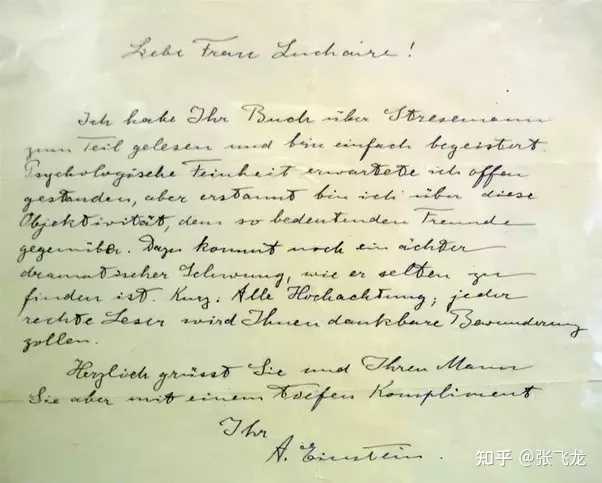 Liebe Frau Luchaire!
Ich habe Ihr Buch über Stresemann
zum Teil gelesen und bin einfach begeistert
Psychologische Feinheit erwartete ich offen
gestanden, aber erstaunt bin ich über diese
Objektivität, dem so bedeutenden Freunde
gegenüber. Dazu kommt noch ein ächter
dramatischer Schwung, wie er selten zu
finden ist. Kurz: Alle Hochachtung; jeder
rechte Leser wird Ihnen dankbare Bewunderung
zollen.
Herzlich grüsst Sie und Ihren Mann
Sie aber mit einem tiefen Kompliment
Ihr
A. Einstein.
知乎 @张飞龙